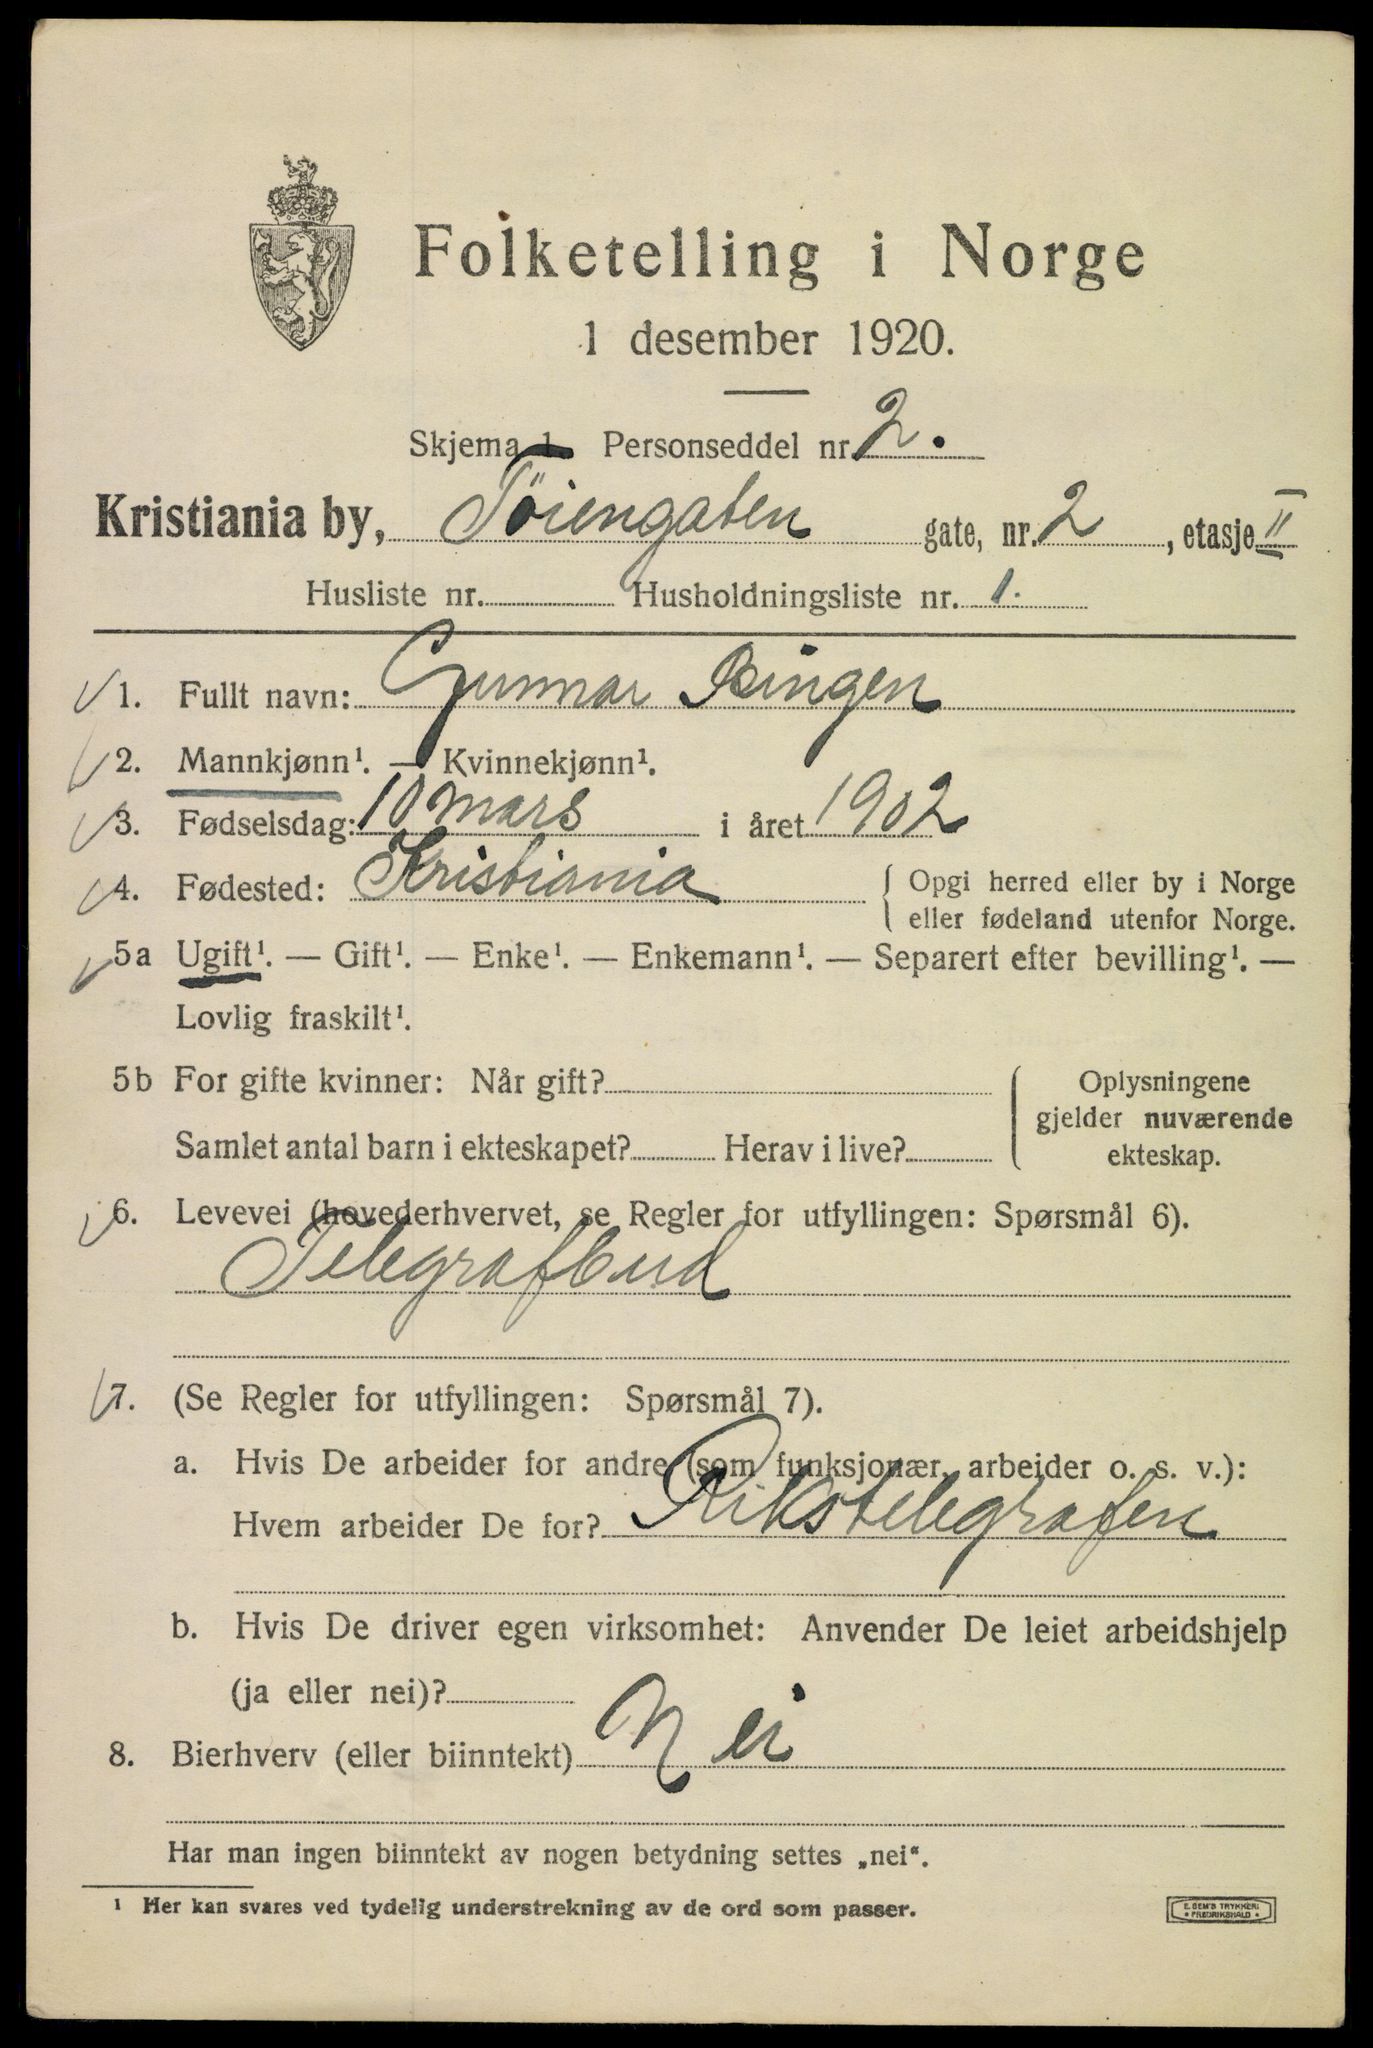 Folketelling i Norge
1 desember 1920.
Skjema 1 Personseddel nr. 2.
Kristiania by, Töiengaten gate, nr. 2, etasje II
Husliste nr. Husholdningsliste nr. 1.
1. Fullt navn: Gunnar Ringen
2. Mannkjønn¹. — Kvinnekjønn¹.
3. Fødselsdag: 10 mars i året 1902
4. Fødested: Kristiania { Opgi herred eller by i Norge
eller fødeland utenfor Norge.
5a Ugift¹. — Gift¹. — Enke¹. — Enkemann¹. — Separert efter bevilling¹. —
Lovlig fraskilt¹.
5b For gifte kvinner: Når gift? Oplysningene
gjelder nuværende
Samlet antal barn i ekteskapet? Herav i live? ekteskap.
6. Levevei (hovederhvervet, se Regler for utfyllingen: Spørsmål 6).
Telegrafbud
7. (Se Regler for utfyllingen: Spørsmål 7).
a. Hvis De arbeider for andre (som funksjonær, arbeider o. s. v.):
Hvem arbeider De for? Rikstelegrafen
b. Hvis De driver egen virksomhet: Anvender De leiet arbeidshjelp
(ja eller nei)?
8. Bierhverv (eller biinntekt) Nei
Har man ingen biinntekt av nogen betydning settes „nei“.
¹ Her kan svares ved tydelig understrekning av de ord som passer.
E. SEM'S TRYKKERI
• FREDRIKSHALD •